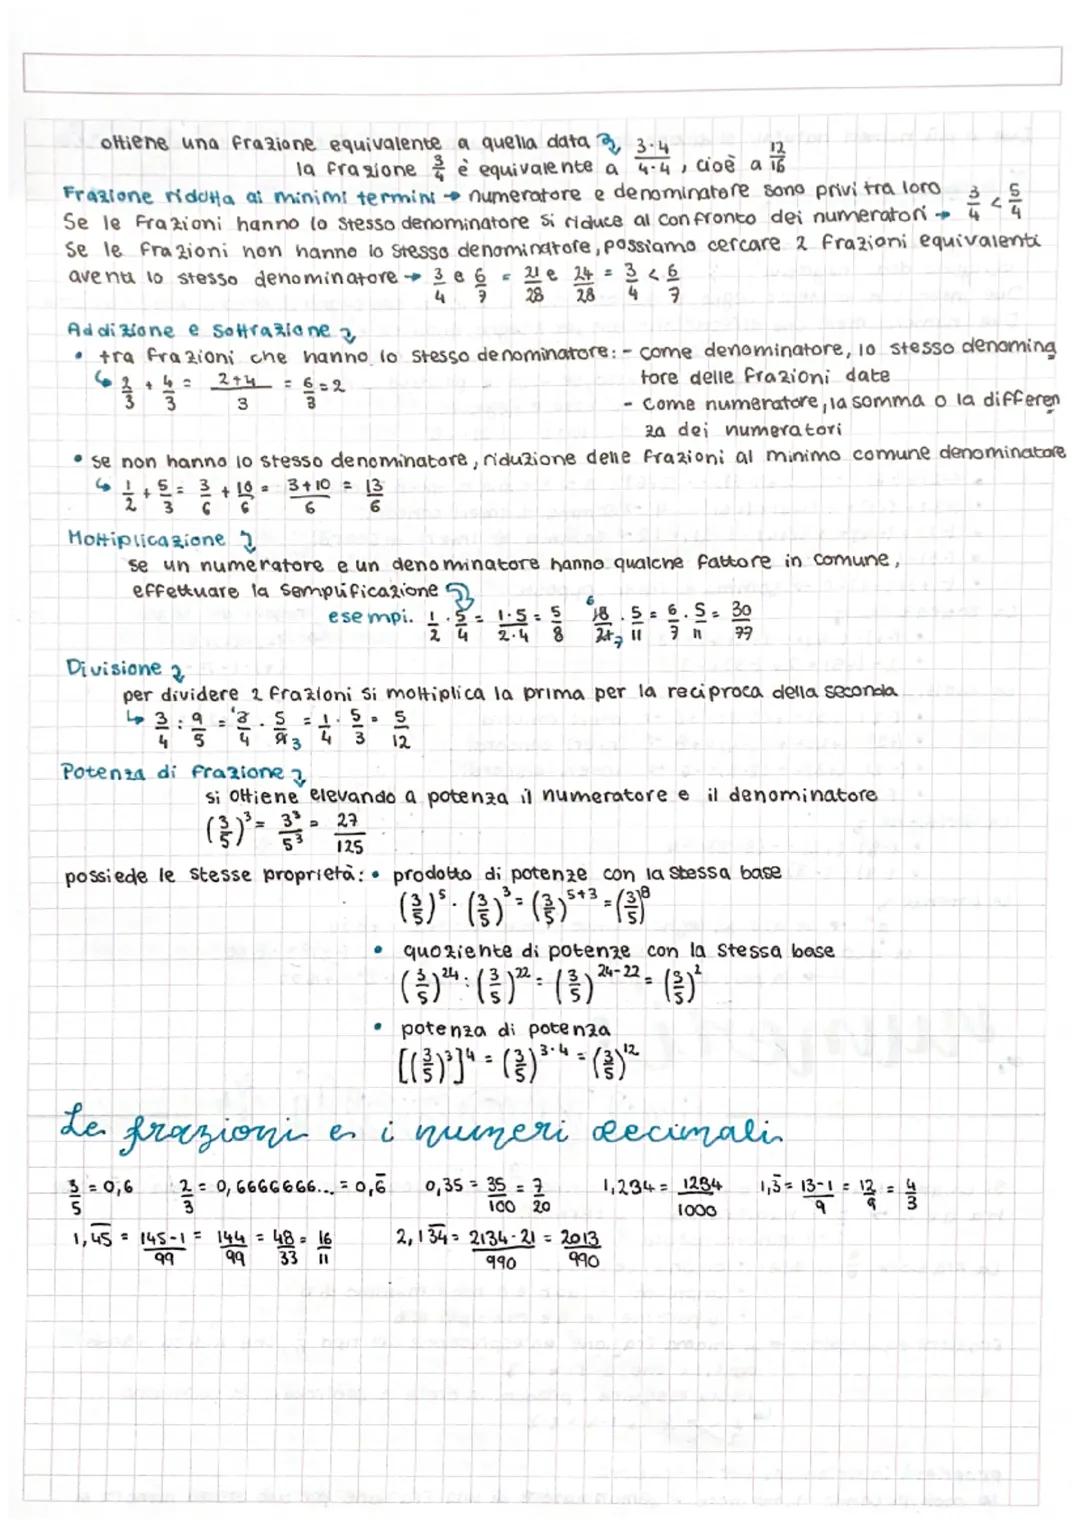 ottiene una frazione equivalente a quella data
la frazione 3/4 è equivalente a 3·4/4·4, cioè a 12/16
Frazione ridotta ai minimi termini → numeratore e denominatore sono privi tra loro
Se le frazioni hanno lo stesso denominatore si riduce al confronto dei numeratori → 3/4 < 5/4
Se le frazioni non hanno lo stesso denominatore, possiamo cercare 2 frazioni equivalenti
aventi lo stesso denominatore → 3/4 e 6/7 = 21/28 e 24/28 = 3/4 < 6/7
Addizione e Sottrazione
• tra frazioni che hanno lo stesso denominatore: - come denominatore, lo stesso denomina
tore delle frazioni date
↳ 2/3 + 4/3 = 2+4/3 = 6/3 = 2
- come numeratore, la somma o la differen
za dei numeratori
• se non hanno lo stesso denominatore, riduzione delle frazioni al minimo comune denominatore
↳ 1/2 + 5/3 = 3/6 + 10/6 = 3+10/6 = 13/6
Moltiplicazione
se un numeratore e un denominatore hanno qualche fattore in comune,
effettuare la semplificazione
esempi. 1/2 · 5/4 = 1·5/2·4 = 5/8 6 18/21 7 · 5/11 = 6/7 · 5/11 = 30/77
Divisione
per dividere 2 frazioni si moltiplica la prima per la reciproca della seconda
↳ 3/4 : 9/5 = 1 3/4 · 5/9 3 = 1/4 · 5/3 = 5/12
Potenza di frazione
si ottiene elevando a potenza il numeratore e il denominatore
(3/5)³ = 3³/5³ = 27/125
possiede le stesse proprietà: • prodotto di potenze con la stessa base
(3/5)⁵ · (3/5)³ = (3/5)⁵⁺³ = (3/5)⁸
• quoziente di potenze con la stessa base
(3/5)²⁴ : (3/5)²² = (3/5)²⁴⁻²² = (3/5)²
• potenza di potenza
[(3/5)³]⁴ = (3/5)³·⁴ = (3/5)¹²
Le frazioni e i numeri decimali
3/5 = 0,6 2/3 = 0,6666666... = 0,6̅ 0,35 = 35/100 = 7/20 1,234 = 1234/1000 1,3̅ = 13-1/9 = 12/9 = 4/3
1,4̅5̅ = 145-1/99 = 144/99 = 48/33 = 16/11 2,13̅4̅ = 2134-21/990 = 2013/990